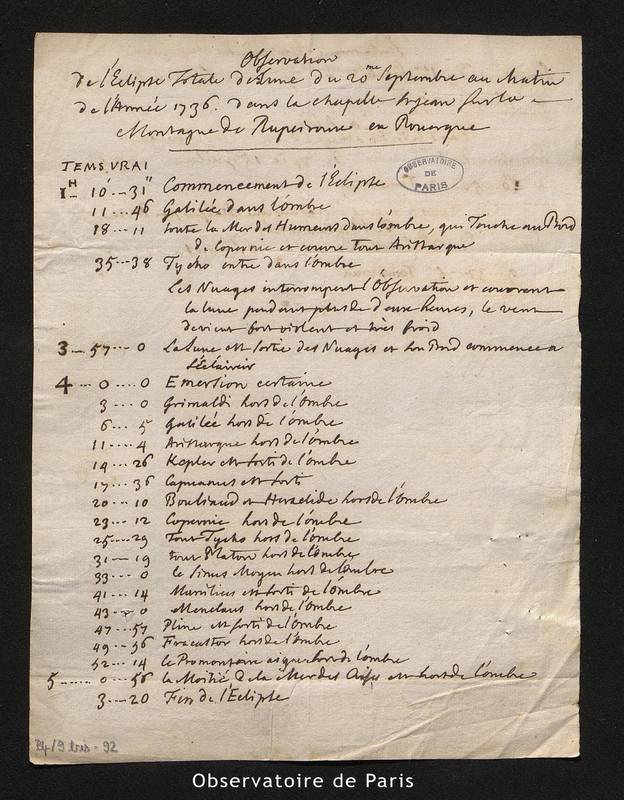 Observation
de l'Eclipse Totale de Lune du 20me Septembre au Matin
de l'Année 1736. dans la chapelle St jean sur la
Montagne de Rupeiroux en Rouergue
TEMS VRAI
OBSERVATOIRE DE PARIS
1H 10'---31" Commencement de l'Eclipse
11---46 Galilée dans l'ombre
18---11 toute la Mer des Humeurs dans l'ombre, qui Touche au Bord
de Copernic et couvre tout Aristarque
35---38 Tycho entre dans l'ombre
Les Nuages interrompent l'Observation et couvrent
la lune pendant plus de deux heures, le vent
devient fort violent et très froid
3---57---0 La Lune est sortie des Nuages et son Bord commence a
s'éclaircir
4---0---0 Emersion certaine
3---0 Grimaldi hors de l'ombre
6---5 Galilée hors de l'ombre
11---4 Aristarque hors de l'ombre
14---26 Kepler est sorti de l'ombre
17---36 Capuanus est sorti
20---10 Bouliaud et Heraclide hors de l'ombre
23---12 Copernic hors de l'ombre
25---29 Tout Tycho hors de l'ombre
31---19 tout Platon hors de l'ombre
33---0 le Sinus Moyen hors de l'ombre
41---14 Manilius est sorti de l'ombre
43---0 Menelaus hors de l'ombre
47---57 Pline est sorti de l'ombre
49---56 Fracastor hors de l'ombre
52---14 le Promontoire aigu hors de l'ombre
5---0---56 la Moitié de la Mer des Crises est hors de l'ombre
3---20 Fin de l'Eclipse
bis - 92
Observatoire de Paris